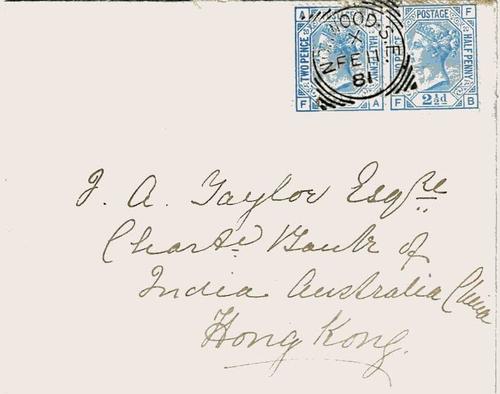 TWO PENCE HALF PENNY POSTAGE HALF PENNY
F A F 2½d B
WOOD·S.E.
X
FE 11
81
J. A. Taylor Esqre
Chartd Bank of
India Australia China
Hong Kong.